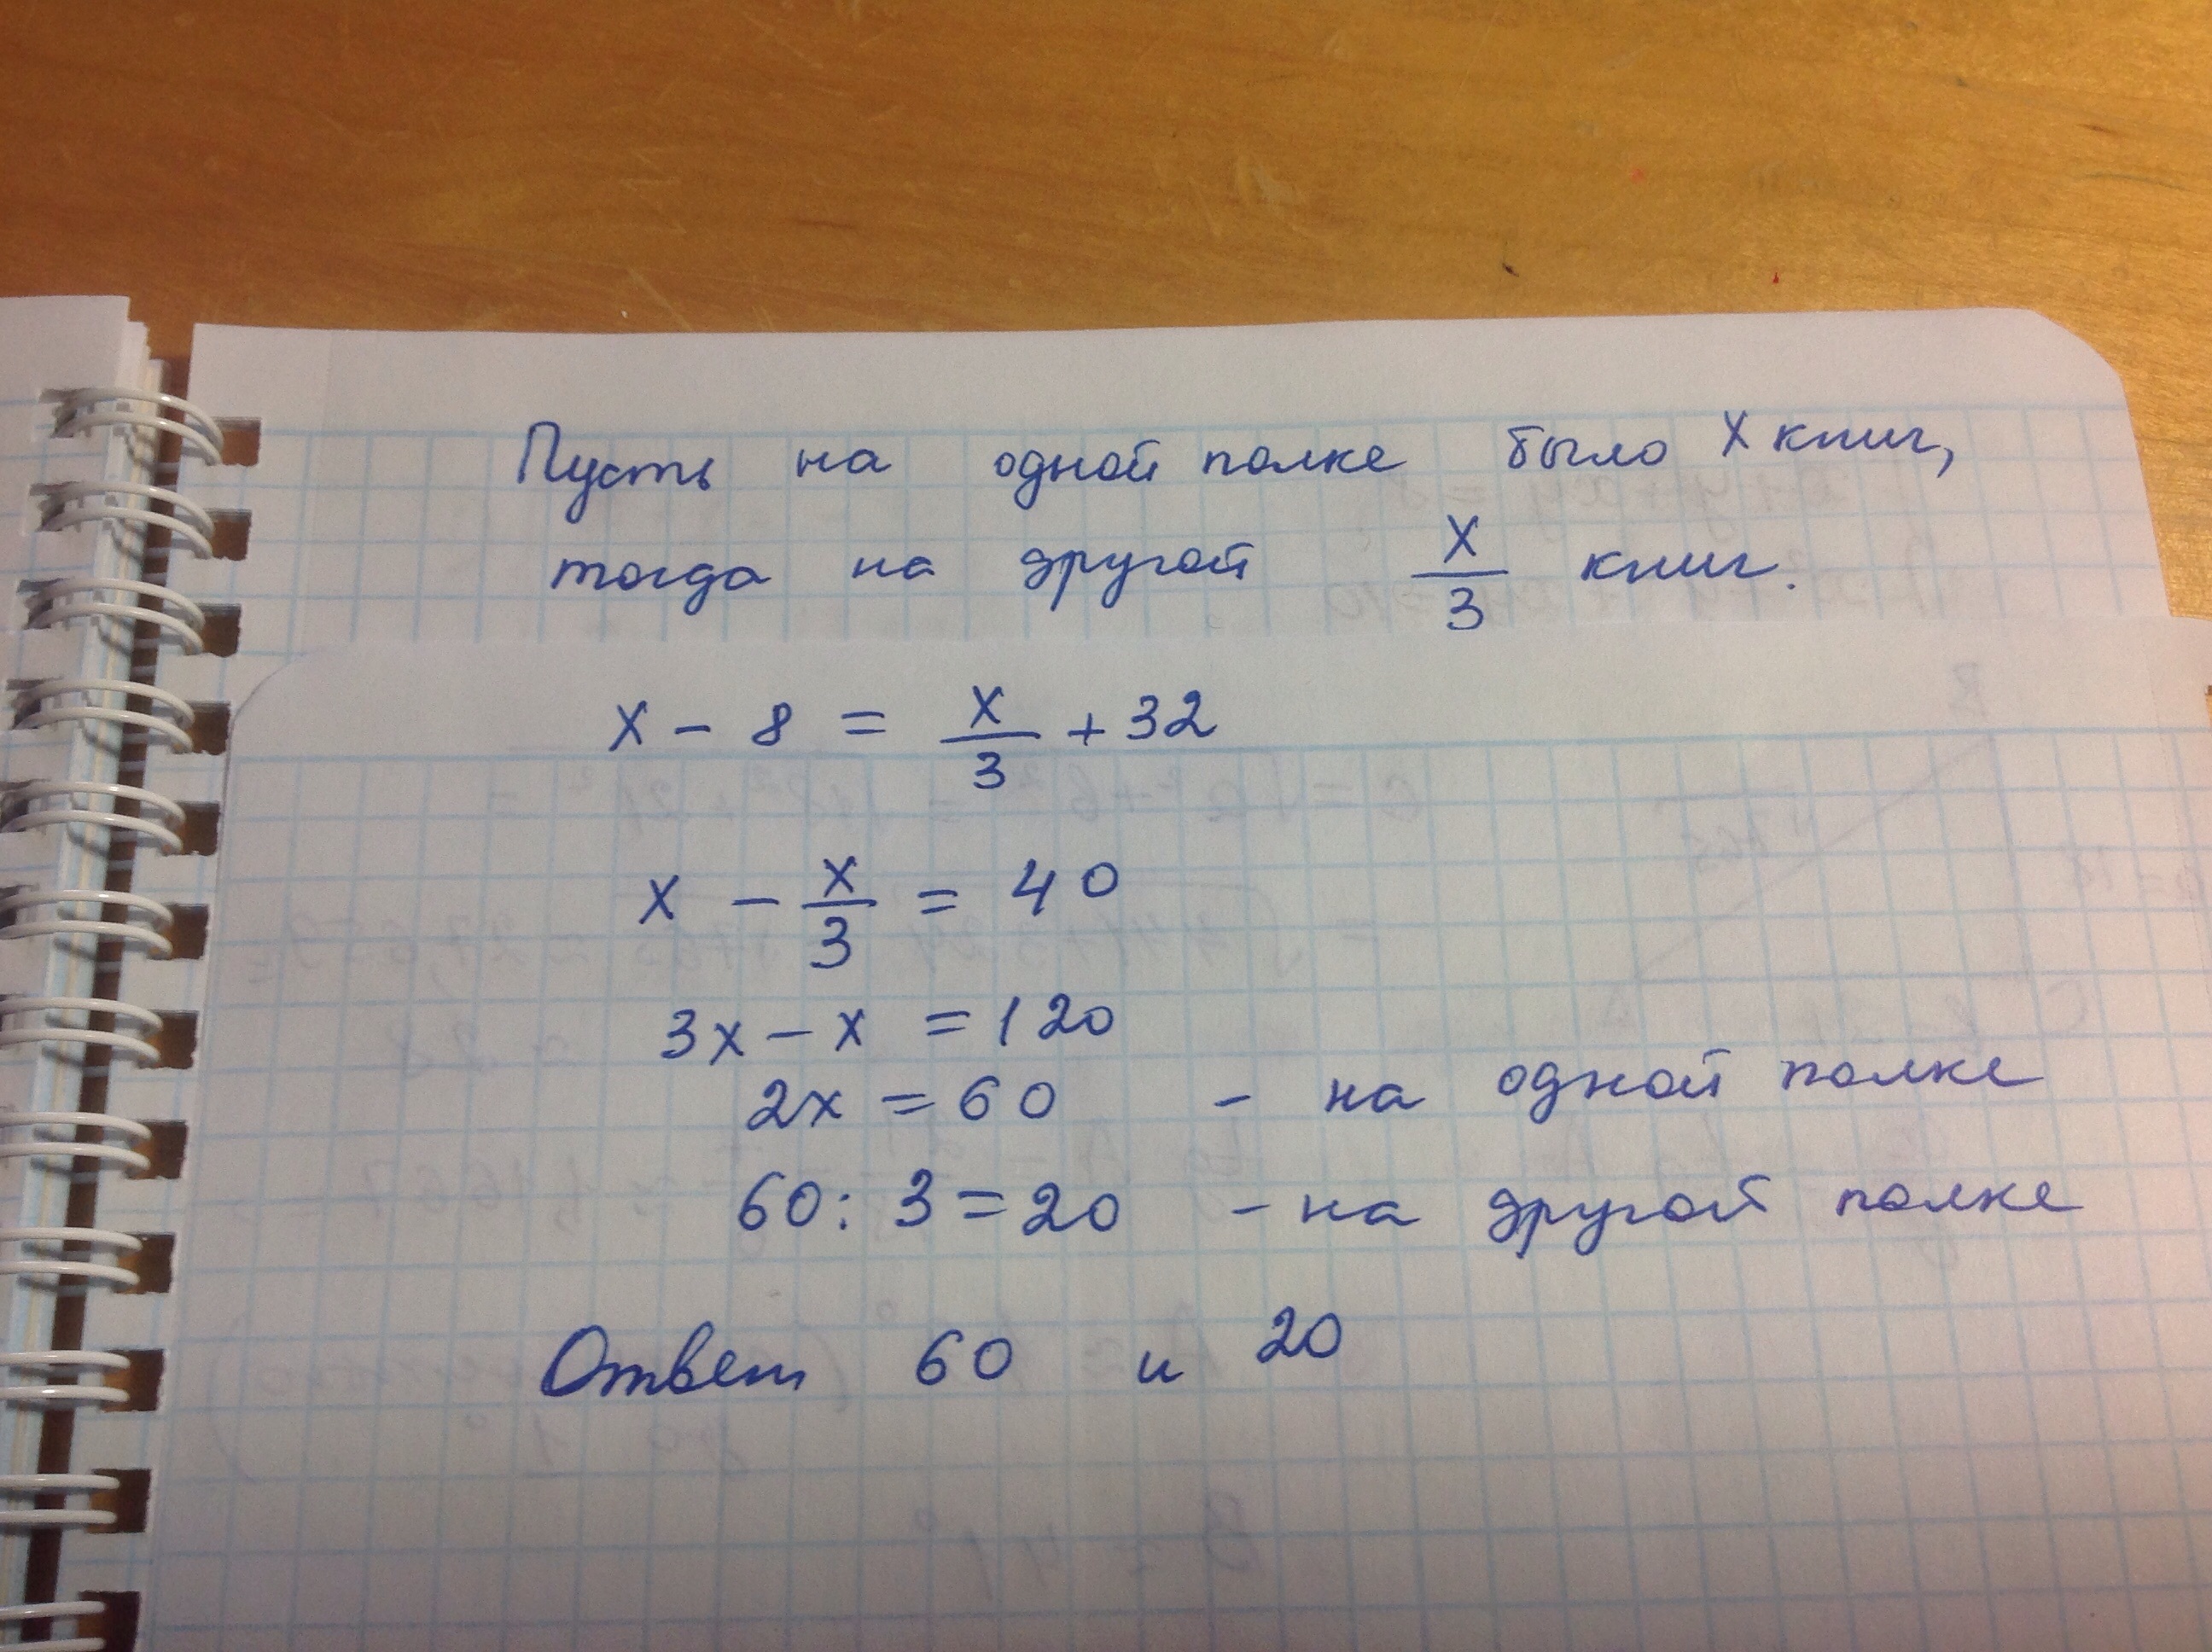 Пусть на одной полке было x книг,
тогда на другой x/3 книг.
x - 8 = x/3 + 32
x - x/3 = 40
3x - x = 120
2x = 60 - на одной полке
60 : 3 = 20 - на другой полке
Ответ 60 и 20